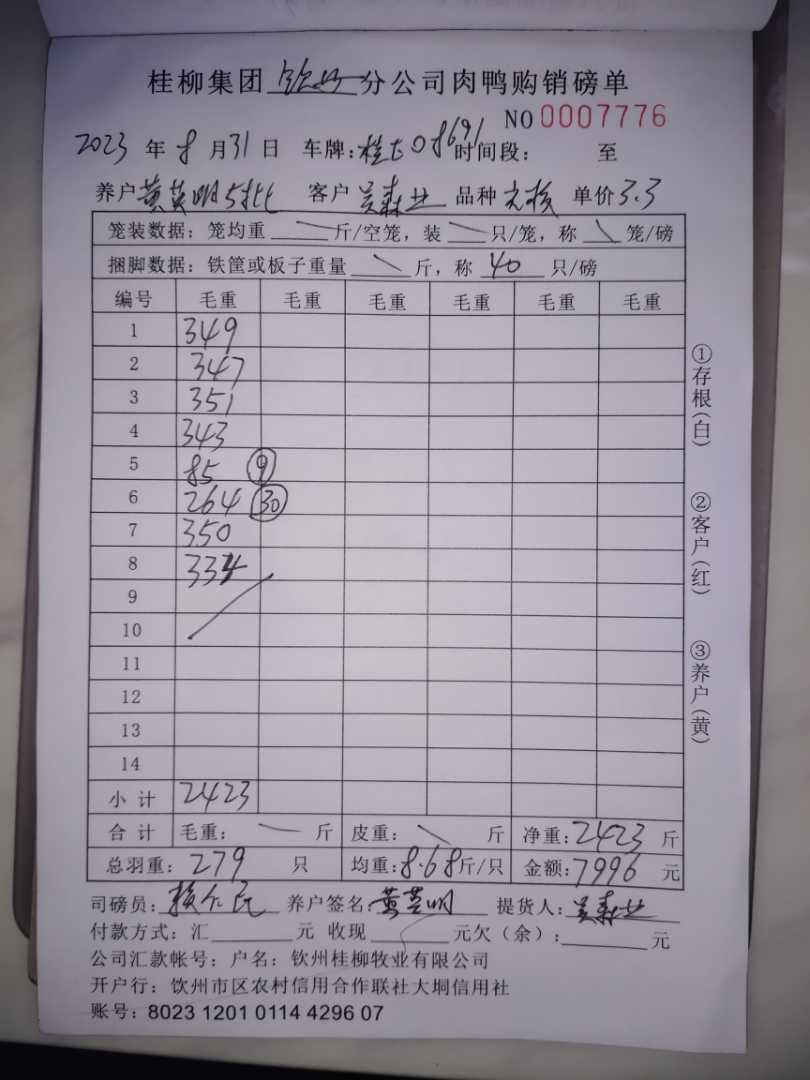 桂柳集团 钦州 分公司肉鸭购销磅单
NO 0007776
2023 年 8 月 31 日 车牌:桂 08691 时间段: 至
养户 黄英明 客户 吴森业 品种 单价 3.3
笼装数据: 笼均重 斤/空笼, 装 只/笼, 称 笼/磅
捆脚数据: 铁筐或板子重量 斤, 称 40 只/磅
编号 毛重 毛重 毛重 毛重 毛重 毛重
1 349
2 347
3 351
4 343
5 85 ⑨
6 264 ㉚
7 350
8 334
9
10
11
12
13
14
小 计 2423
合 计 毛重: 斤 皮重: 斤 净重: 2423 斤
总羽重: 279 只 均重: 8.68 斤/只 金额: 7996 元
司磅员: 养户签名: 黄英明 提货人: 吴森业
付款方式: 汇 元 收现 元欠(余): 元
公司汇款帐号: 户名: 钦州桂柳牧业有限公司
开户行: 饮州市区农村信用合作联社大垌信用社
账号: 8023 1201 0114 4296 07
①存根(白)
②客户(红)
③养户(黄)